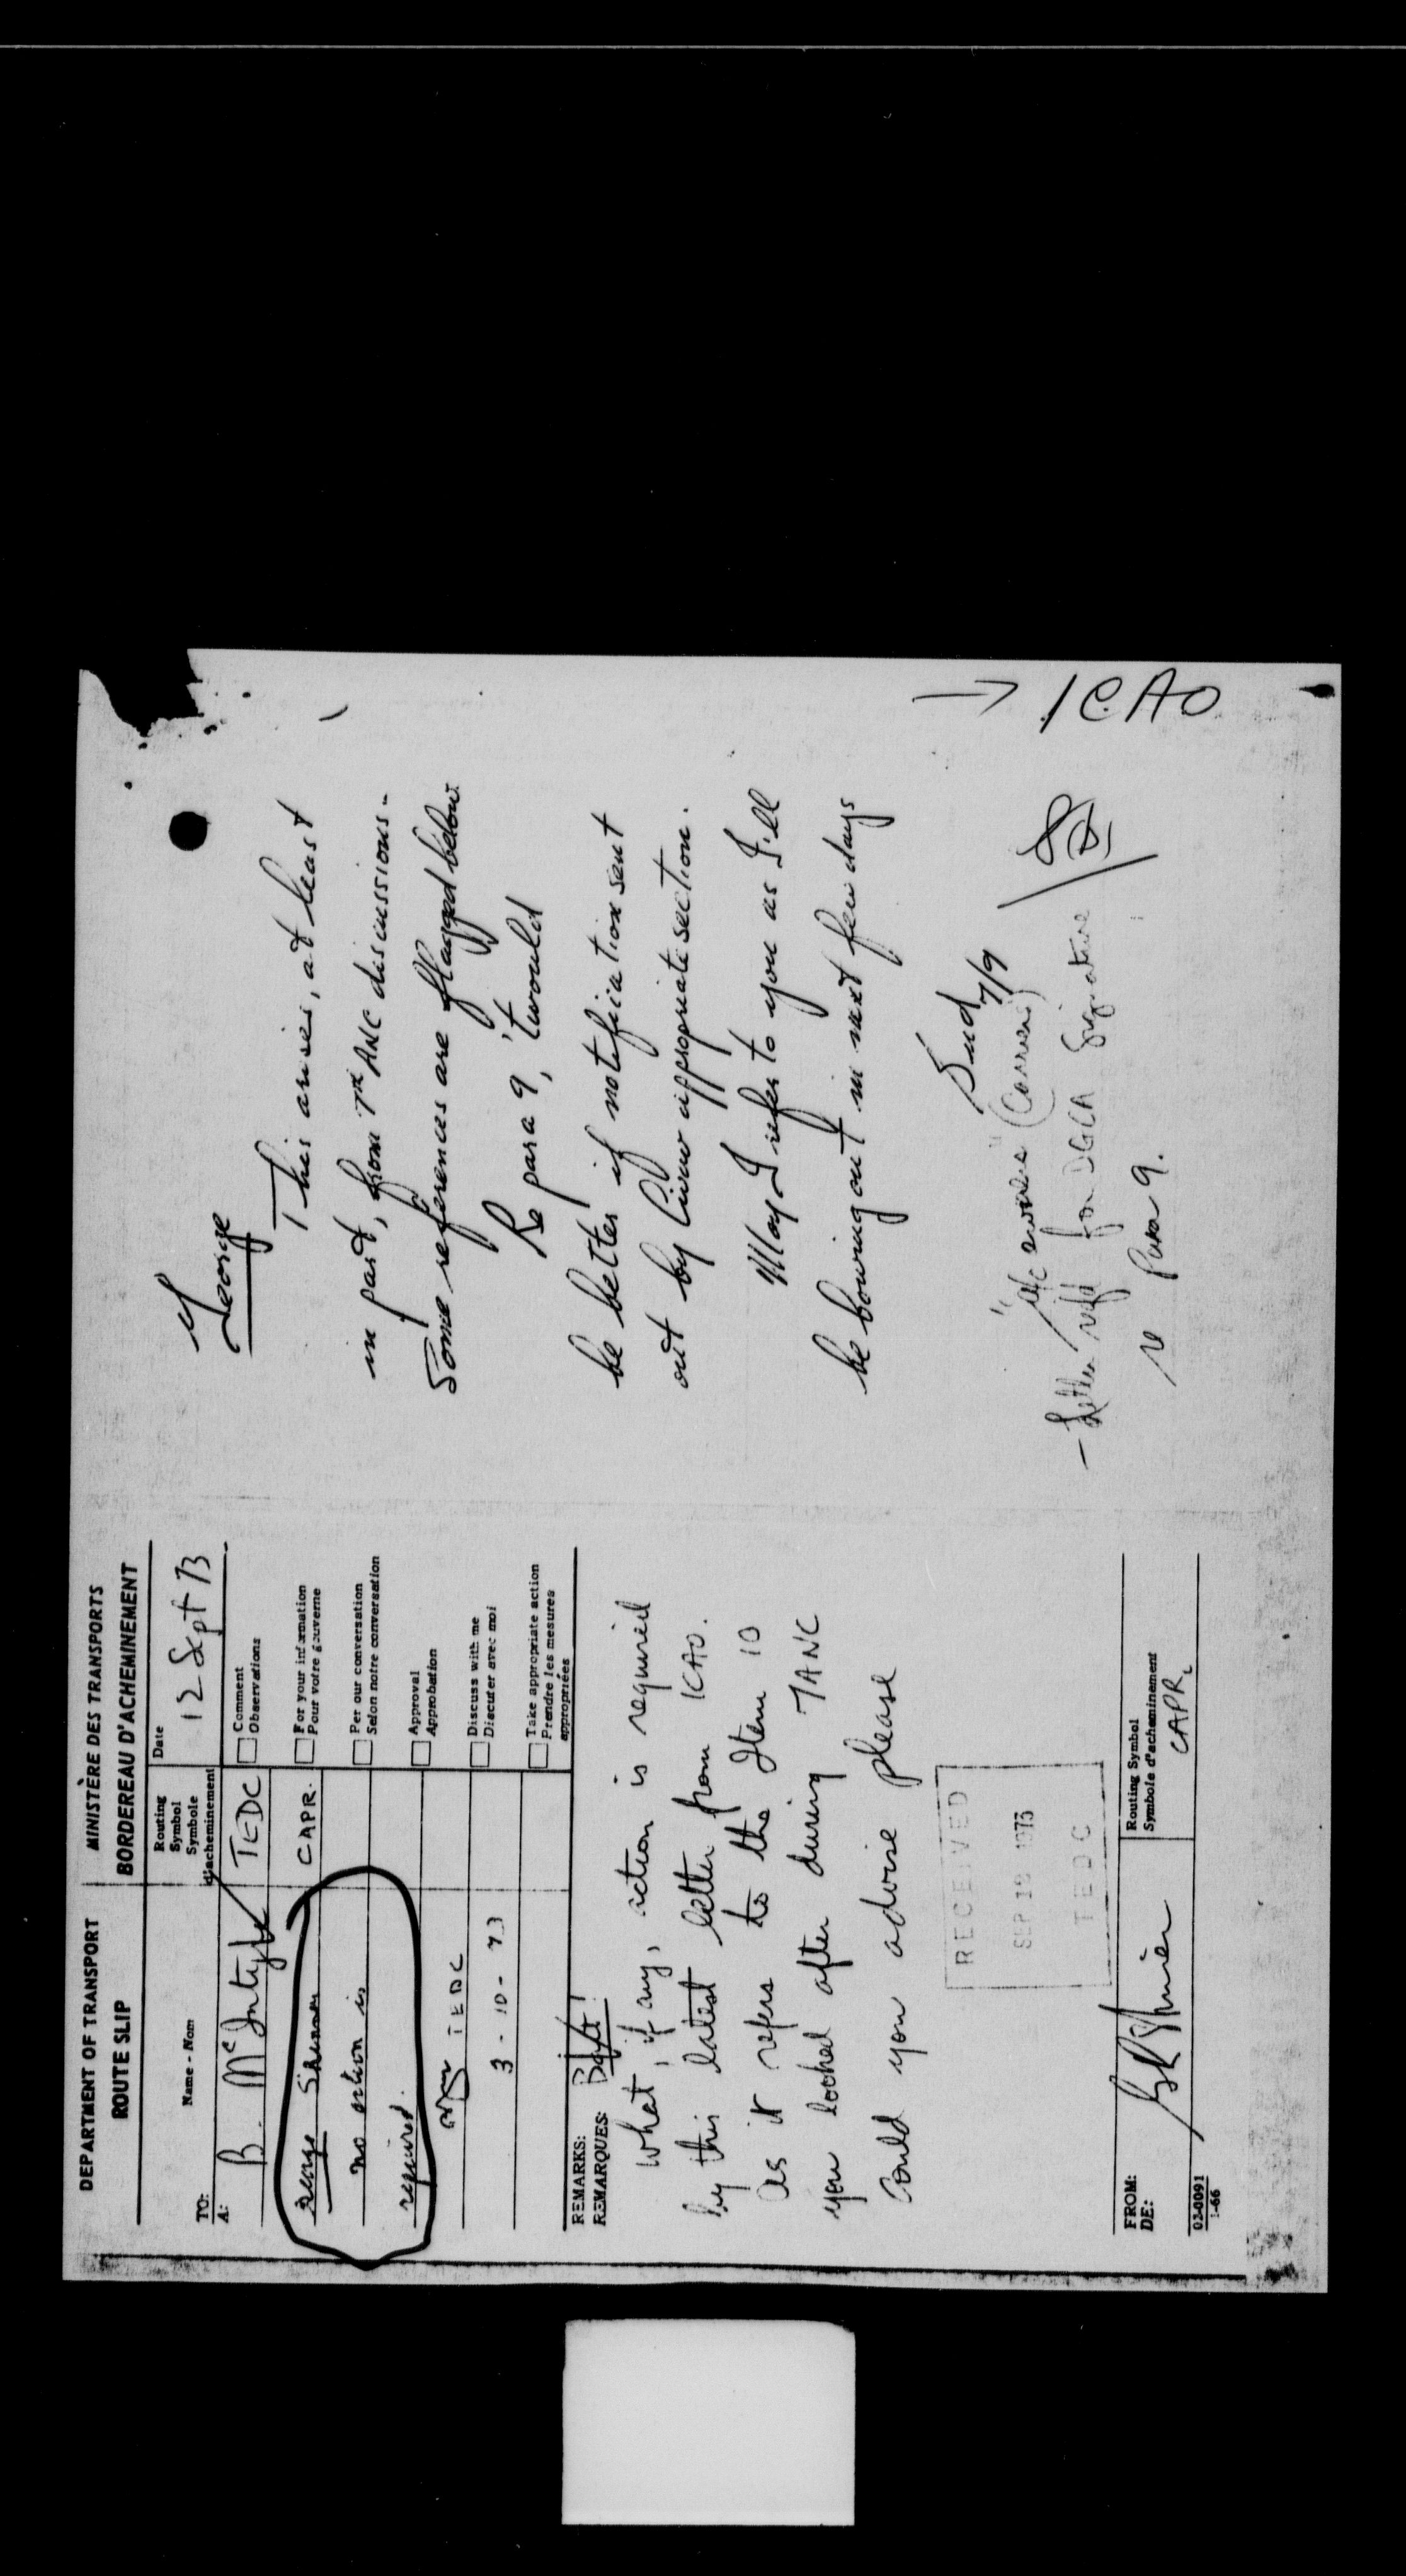 DEPARTMENT OF TRANSPORT
ROUTE SLIP
MINISTÈRE DES TRANSPORTS
BORDEREAU D'ACHEMINEMENT
Name - Nom
Routing
Symbol
Symbole
d'acheminement
Date
12 Sept 73
TO:
A:
B. McIntyre
TEDC
CAPR.
George Skinner
no action is
required.
TEDC
3-10-73
Comment
Observations
For your information
Pour votre gouverne
Per our conversation
Selon notre conversation
Approval
Approbation
Discuss with me
Discuter avec moi
Take appropriate action
Prendre les mesures
appropriées
REMARKS:
REMARQUES:
What, if any, action is required
by this latest letter from ICAO.
As it refers to the Item 10
you looked after during 7ANC
Could you advise please
RECEIVED
SEP 12 1973
TEDC
FROM:
DE:
Routing Symbol
Symbole d'acheminement
CAPR
02-0091
1-66
George
This arises, at least
in part, from 7th ANC discussions-
Some references are flagged below
Re para 9, 'twould
be better if notification sent
out by Civav appropriate section.
May I refer to you as I'll
be bowing out in next few days
Bud
7/9
→ ICAO
"A/C owner" (Carriers)
- Letter for DGCA Signature
re Para 9.